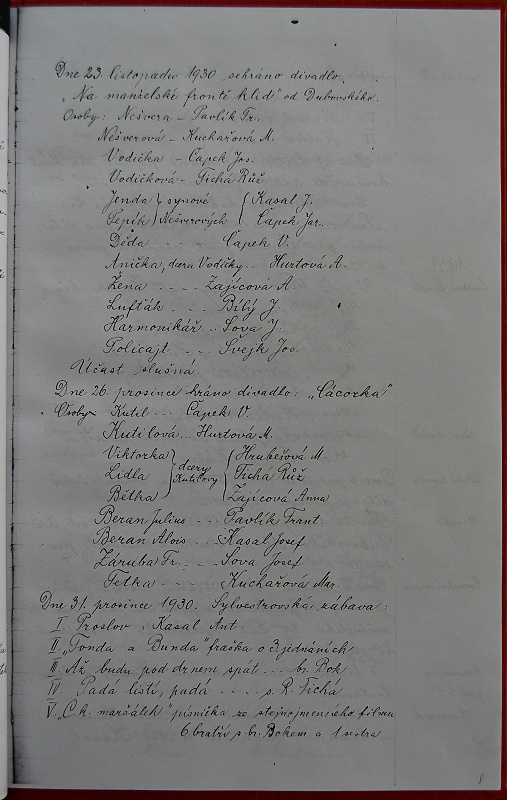 Dne 23. listopadu 1930 sehráno divadlo,
„Na manželské frontě klid" od Dubovského.
Osoby: Nešvera - Pavlík Fr.
Nešverová - Kuchařová M.
Vodička - Čapek Jos.
Vodičková - Tichá Růž.
Jenda } synové { Kasal J.
Pepík } Nešverových { Čapek Jar.
Děda - - - Čapek V.
Anička, dcera Vodičky - - Hurtová A.
Žena - - - - Zajícová A
Lufťák - - - Bílý J.
Harmonikář - - Sova J.
Policajt - - - Švejk Jos.
Účast slušná.
Dne 26. prosince hráno divadlo: „Cácorka"
Osoby Kutil - - - Čapek V.
Kutilová - - - Hurtová M.
Viktorka } { Hrubešová M.
Lidla } dcery Kutilovy { Tichá Růž.
Bětka } { Zajícová Anna
Beran Julius - - - Pavlík Frant.
Beran Alois - - - Kasal Josef
Záruba Fr. - - - Sova Josef
Tetka - - - Kuchařová Mar.
Dne 31. prosince 1930. Sylvestrovská zábava:
I. Proslov: Kasal Ant.
II. „Tonda a Bunda" fraška o 3 jednáních
III. Až budu pod drnem spát - - - br. Bok
IV. Padá listí, padá - - - - s. R. Tichá
V. „C. k. maršálek" písnička ze stejnojmenného filmu
6 bratří s br. Bokem a 1 sestra
8